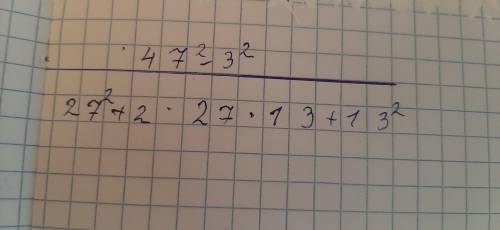 47² - 3²
27² + 2 · 27 · 13 + 13²